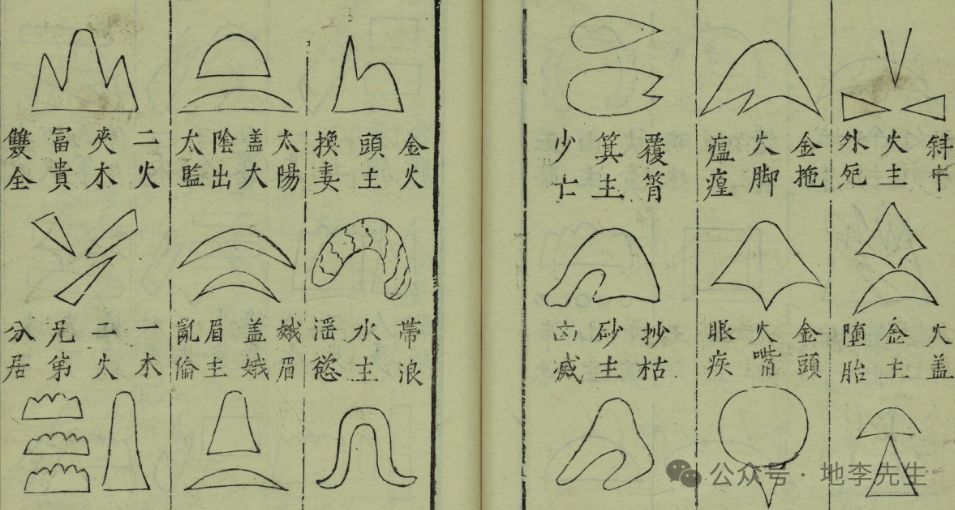 斜中
火主
外死
金拖
火脚
瘟㾮
覆筲
箕主
少亡
火盖
金主
堕胎
金頭
火嘴
眼疾
抄枯
砂主
金火
頭主
換妻
太陽
盖大
陰出
太監
二火
夾木
冨貴
雙全
帶浪
水主
滛慾
娥眉
盖娥
眉主
亂倫
一木
二火
兄弟
分居
公众号·地李先生